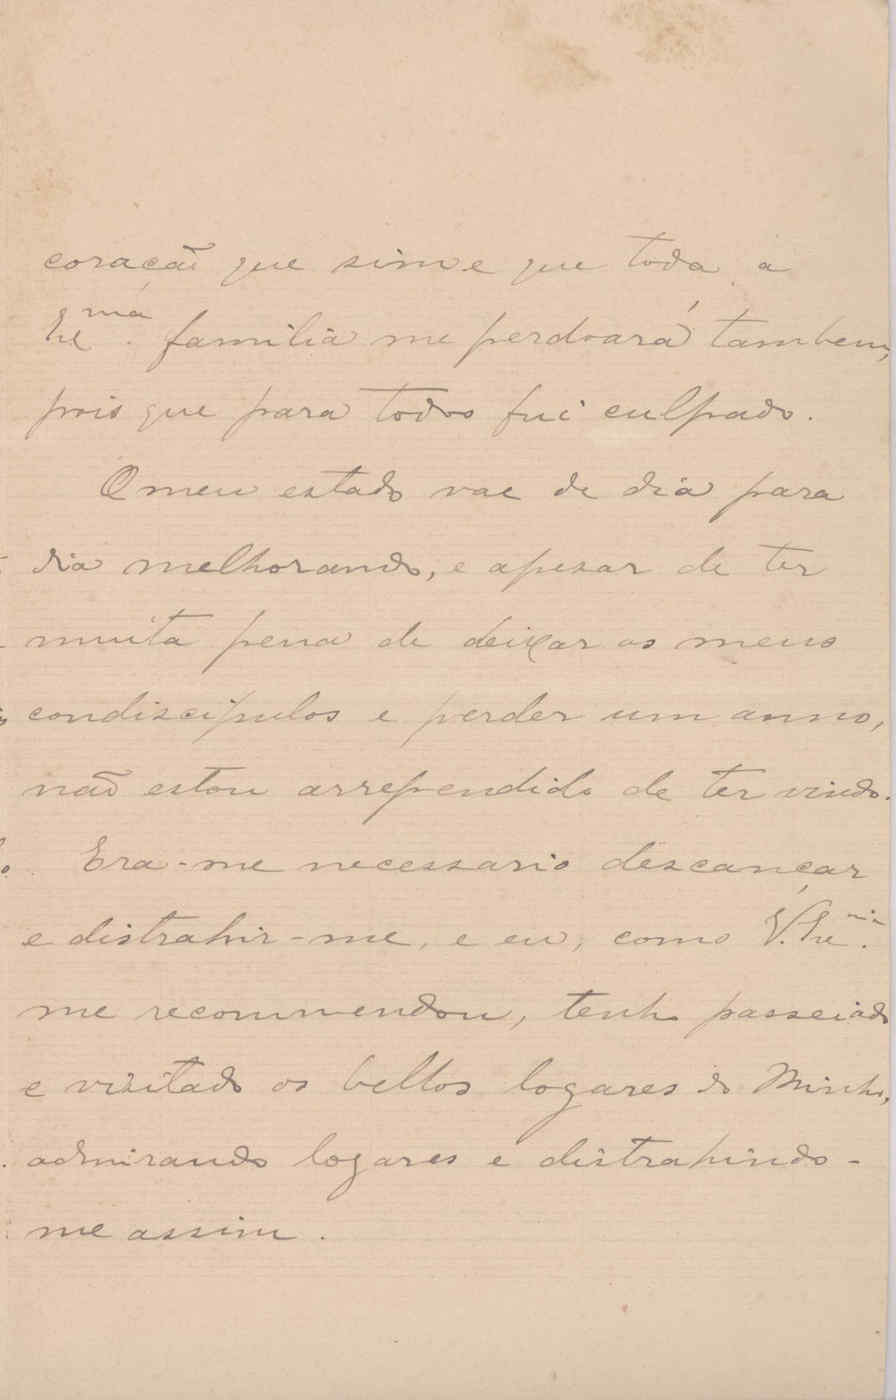 coração que sim e que toda a
Exma. familia me perdoará tambem,
pois que para todos fui culpado.
O meu estado vae de dia para
dia melhorando, e apesar de ter
muita pena de deixar os meus
condiscipulos e perder um anno,
não estou arrependido de ter vindo.
Era-me necessario descançar
e distrahir-me, e eu, como V. Exia.
me recommendou, tenho passeiado
e visitado os bellos logares do Minho,
admirando logares e distrahindo-
me assim.